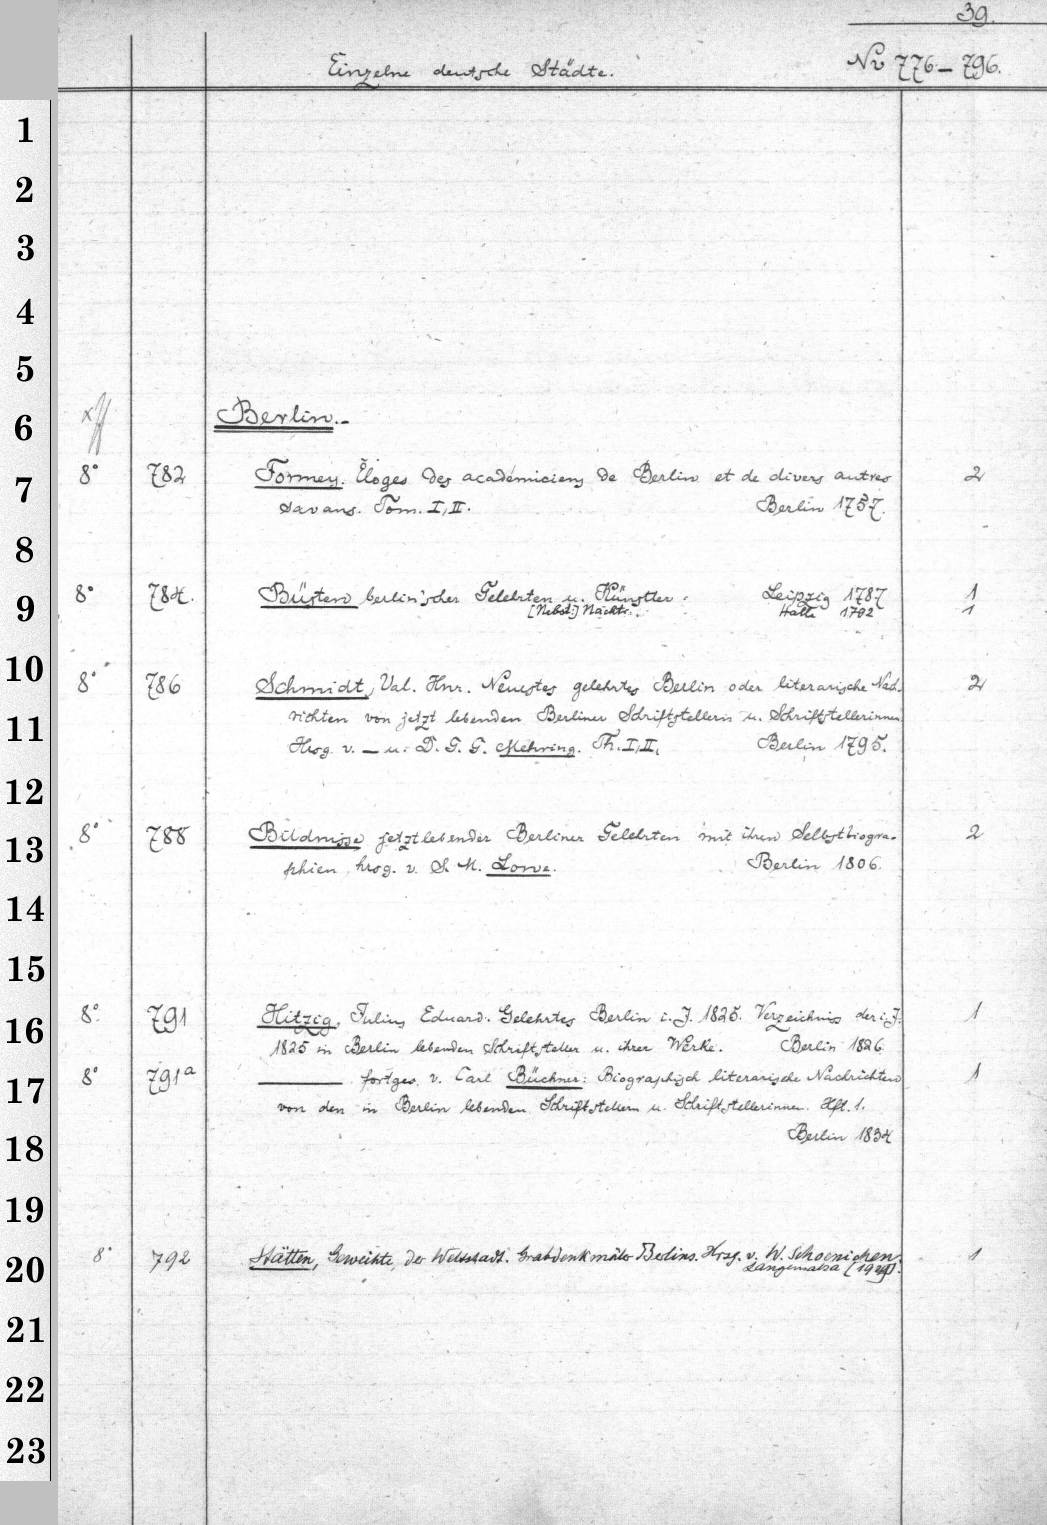 39.
Einzelne deutsche Städte.
Nr 776 – 796.
1
2
3
4
5
6 Berlin.–
7 8° 782 Formey. Éloges des académiciens de Berlin et de divers autres 2
savans. Tom. I, II. Berlin 1757.
8
9 8° 784. Büsten berlin'scher Gelehrten u. Künstler. Leipzig 1787 1
[Nebst:] Nachtr. Halle 1792 1
10 8° 786 Schmidt, Val. Hnr. Neuestes gelehrtes Berlin oder literarische Nach-  2
11 richten von jetzt lebenden Berliner Schriftstellern u. Schriftstellerinnen
Hrsg. v. – u. D. G. G. Mehring. Th. I, II. Berlin 1795.
12
13 8° 788 Bildnisse jetztlebender Berliner Gelehrten mit ihren Selbstbiogra- 2
phien hrsg. v. S. M. Lowe. Berlin 1806.
14
15
16 8° 791 Hitzig, Julius Eduard. Gelehrtes Berlin i. J. 1825. Verzeichniss der i. J. 1
1825 in Berlin lebenden Schriftsteller u. ihrer Werke. Berlin 1826
17 8° 791a ——— fortges. v. Carl Büchner: Biographisch literarische Nachrichten 1
von den in Berlin lebenden Schriftstellern u. Schriftstellerinnen. Hft. 1.
18 Berlin 1834
19
20 8° 792 Stätten, Geweihte, der Weltstadt. Grabdenkmäler Berlins. Hrsg. v. W. Schoenichen. 1
Langensalza
21
22
23